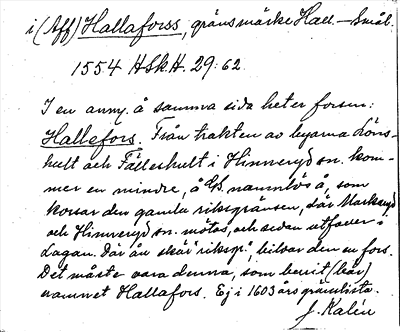 i (Aff) Hallaforss, gränsmärke Hall.–Smål.
1554 HSkH. 29:62.
I en anny. å samma sida heter forsen:
Hallefors. Från trakten av byarna Löns-
hult och Fällerhult i Hinneryd sn. kom-
mer en mindre, å GS. namnlös å, som
korsar den gamla riksgränsen, där Markaryd
och Hinneryd sn. mötas, och sedan utfaller i
Lagan. Där ån skär riksgr., bildar den en fors.
Det måste vara denna, som burit (bär)
namnet Hallafors. Ej i 1603 års gränslista.
J. Kalén